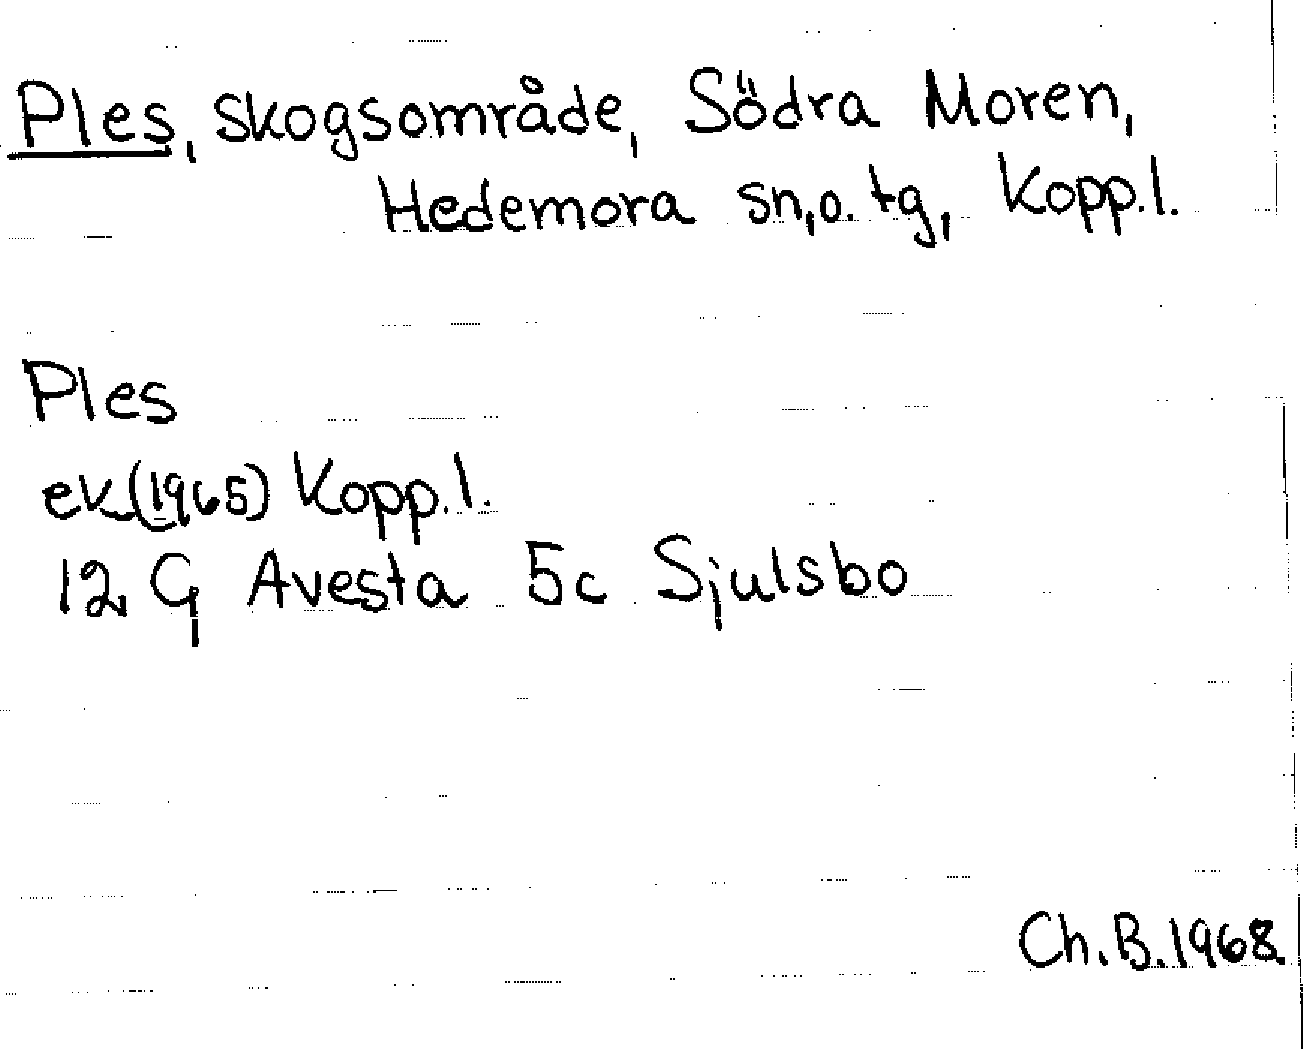 Ples, skogsområde, Södra Moren,
Hedemora sn, o. tg, Kopp.l.
Ples
ek (1965) Kopp.l.
12 G Avesta 5c Sjulsbo
Ch.B.1968.